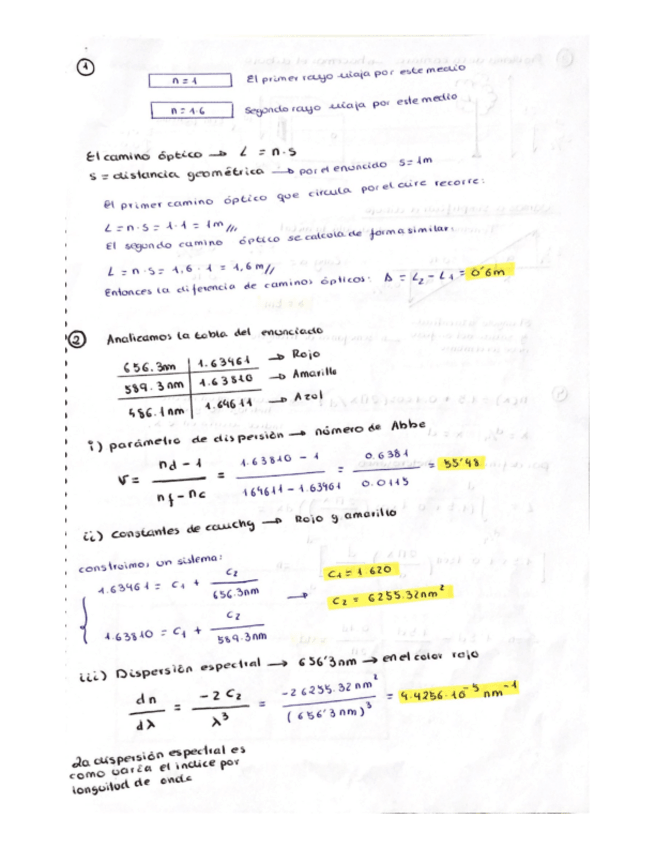 1
n = 1 El primer rayo viaja por este medio
n = 1.6 Segundo rayo viaja por este medio
El camino óptico → L = n · s
s = distancia geométrica → por el enuncido s = 1m
El primer camino óptico que circula por el aire recorre:
L = n · s = 1 · 1 = 1m //
El segundo camino óptico se calcula de forma similar:
L = n · s = 1,6 · 1 = 1,6 m //
Entonces la diferencia de caminos ópticos: Δ = L2 - L1 = 0'6m
2 Analicamos la tabla del enunciado
656.3nm 1.63461 → Rojo
589.3nm 1.63810 → Amarillo
486.1nm 1.64611 → Azul
i) parámetro de dispersión → número de Abbe
V = nd - 1 / nf - nc = 1.63810 - 1 / 1.64611 - 1.63461 = 0.6381 / 0.0115 = 55'48
ii) Constantes de cauchy → Rojo y amarillo
construimos un sistema:
1.63461 = C1 + C2 / 656.3nm
1.63810 = C1 + C2 / 589.3nm
→ C1 = 1.620
C2 = 6255.32nm²
iii) Dispersión espectral → 656'3nm → en el color rojo
dn / dλ = -2 C2 / λ³ = -2 6255.32 nm² / (656'3 nm)³ = 4.4256·10⁻⁵ nm⁻¹
La dispersión espectral es
como varía el indice por
longuitud de onda